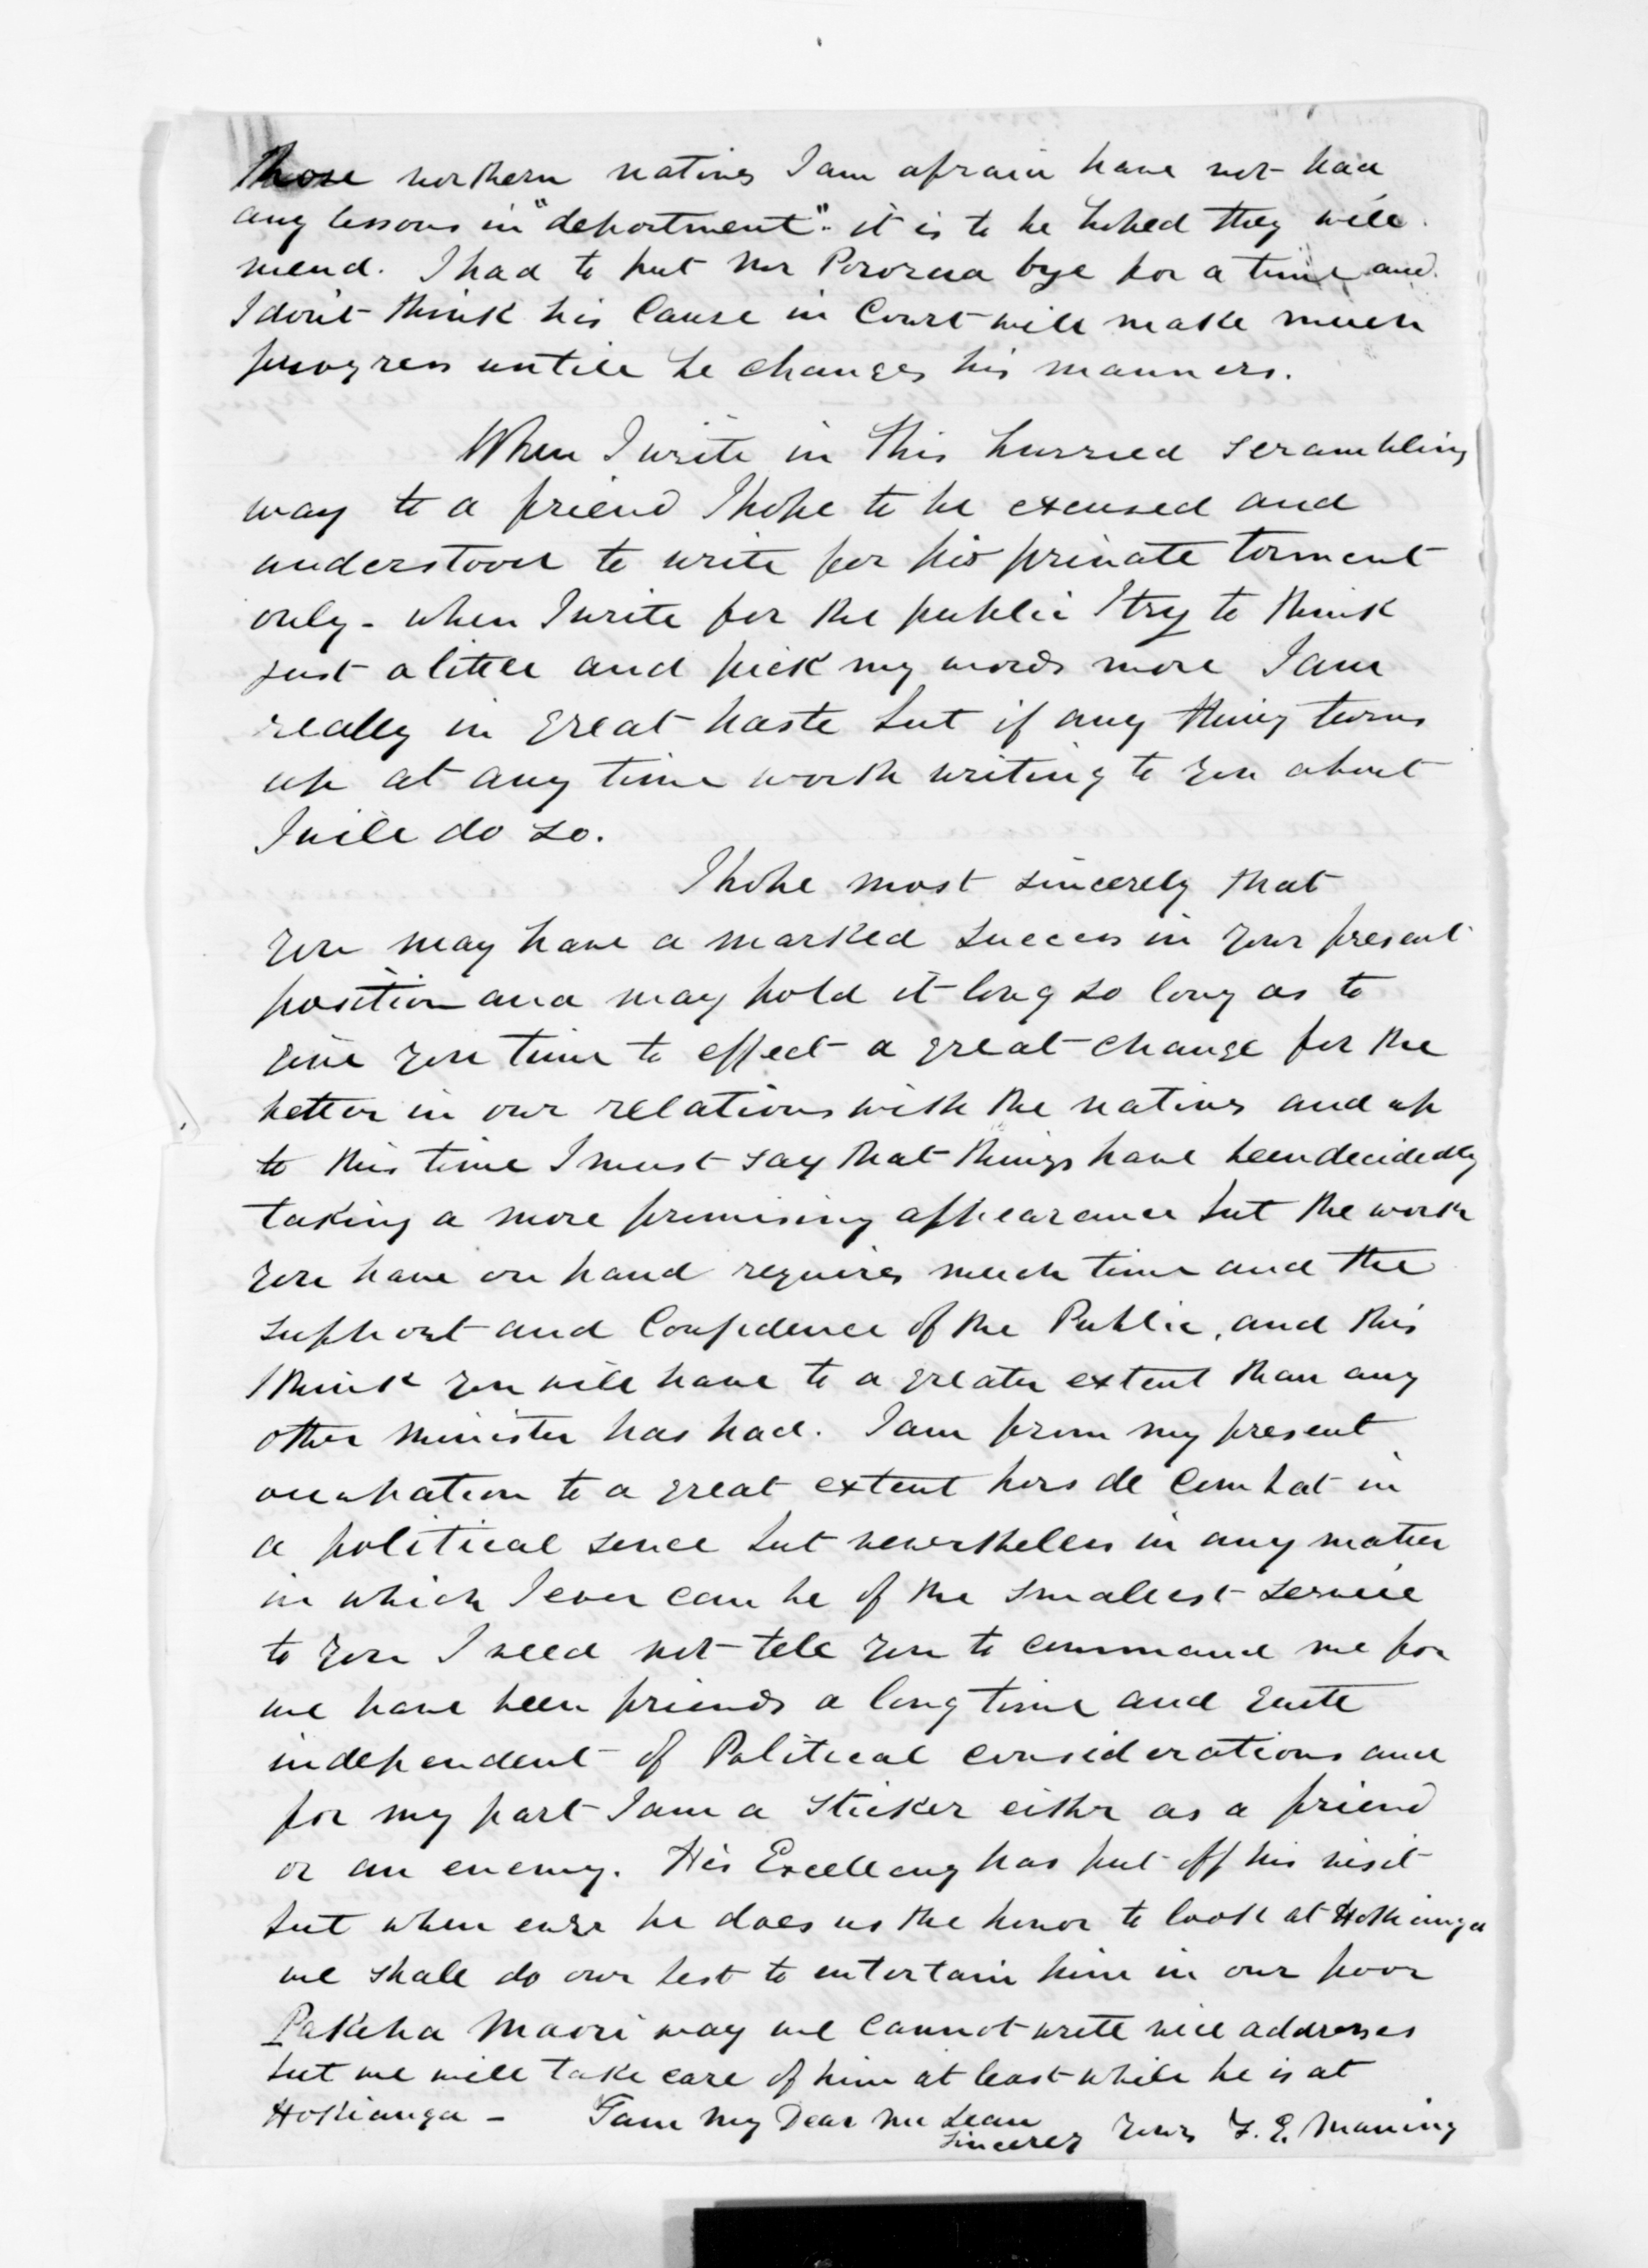 those northern natives I am afraid have not had
any lessons in "deportment". it is to be hoped they will
mend. I had to put Mr Pororua bye for a time and
I don't think his Cause in Court will make much
progress untill he changes his manners.
When I write in this hurried scrambling
way to a friend I hope to be excused and
understood to write for his private torment
only - when I write for the public I try to think
just a little and pick my words more I am
really in great haste but if any thing turns
up at any time worth writing to you about
I will do so.
I hope most sincerely that
you may have a marked success in your present
position and may hold it long so long as to
give you time to effect a great change for the
better in our relations with the natives and up
to this time I must say that things have been decidedly
taking a more promising appearance but the work
you have on hand requires much time and the
support and Confidence of the Public, and this
I think you will have to a greater extent than any
other minister has had. I am from my present
occupation to a great extent hors de Combat in
a political sence but nevertheless in any matter
in which I ever can be of the smallest service
to you I need not tell you to command me for
we have been friends a long time and quite
independent of Political considerations and
for my part I am a sticker either as a friend
or an enemy. His Excellency has put off his visit
but when ever he does us the honor to look at Hokianga
we shall do our best to entertain him in our poor
Pakeha Maori way we cannot write nice addresses
but we will take care of him at least while he is at
Hokianga - I am My Dear Mc Lean
sincerely yours F. E. Maning